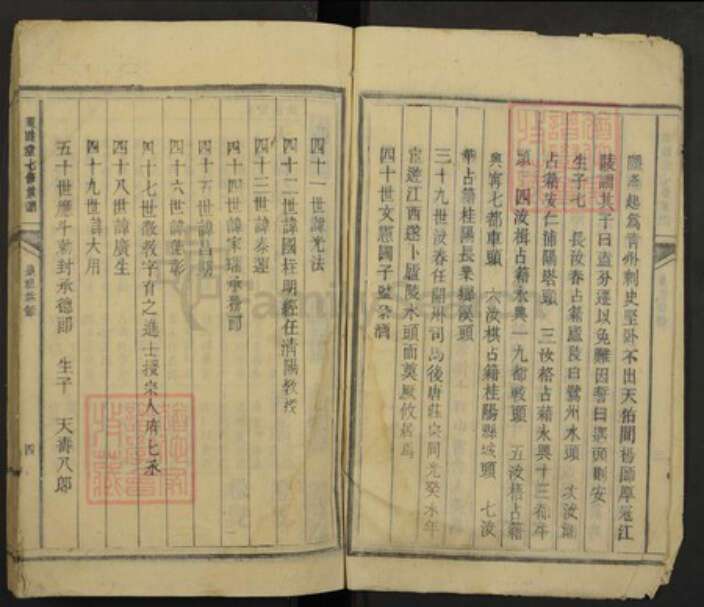 起爲青州刺史堅卧不出天祐間楊師厚寇江
陵謂其子曰盍分遷以免難因誓曰遇頭則安
生子七 長汝春占籍廬陵白鷺州水頭 次汝
占籍安仁浦陽塔頭 三汝格占籍永興十三都
頭 四汝楫占籍永興一九都 頭 五汝梧占籍
興寧七都車頭 六汝棋占籍桂陽縣城頭 七汝
華占籍桂陽長樂鄉溪頭
三十九世汝春任閬州司馬後唐莊宗同光癸水年
宦遊江西遂卜廬陵水頭而奠厥攸居焉
四十世文憲國子監祭酒
四十一世諱光法
四十二世諱國柱明經任清陽教授
四十三世諱泰運
四十四世諱家瑞承務郎
四十五世諱昌朝
四十六世諱 彰
四十七世徵教字育之進士授宗人府七承
四十八世諱廣生
四十九世諱大用
五十世應斗勅封承德郎 生子 天壽八郎
四
FamilySearch